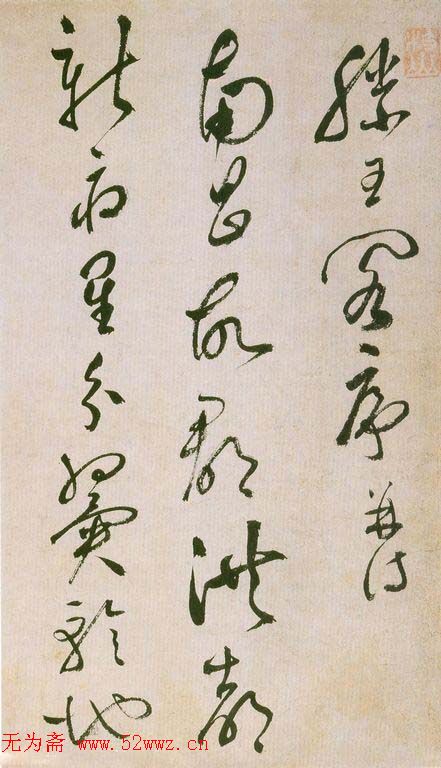 滕王阁序并诗
南昌故郡洪都
新府星分翼轸地
无为斋 www.52wwz.cn